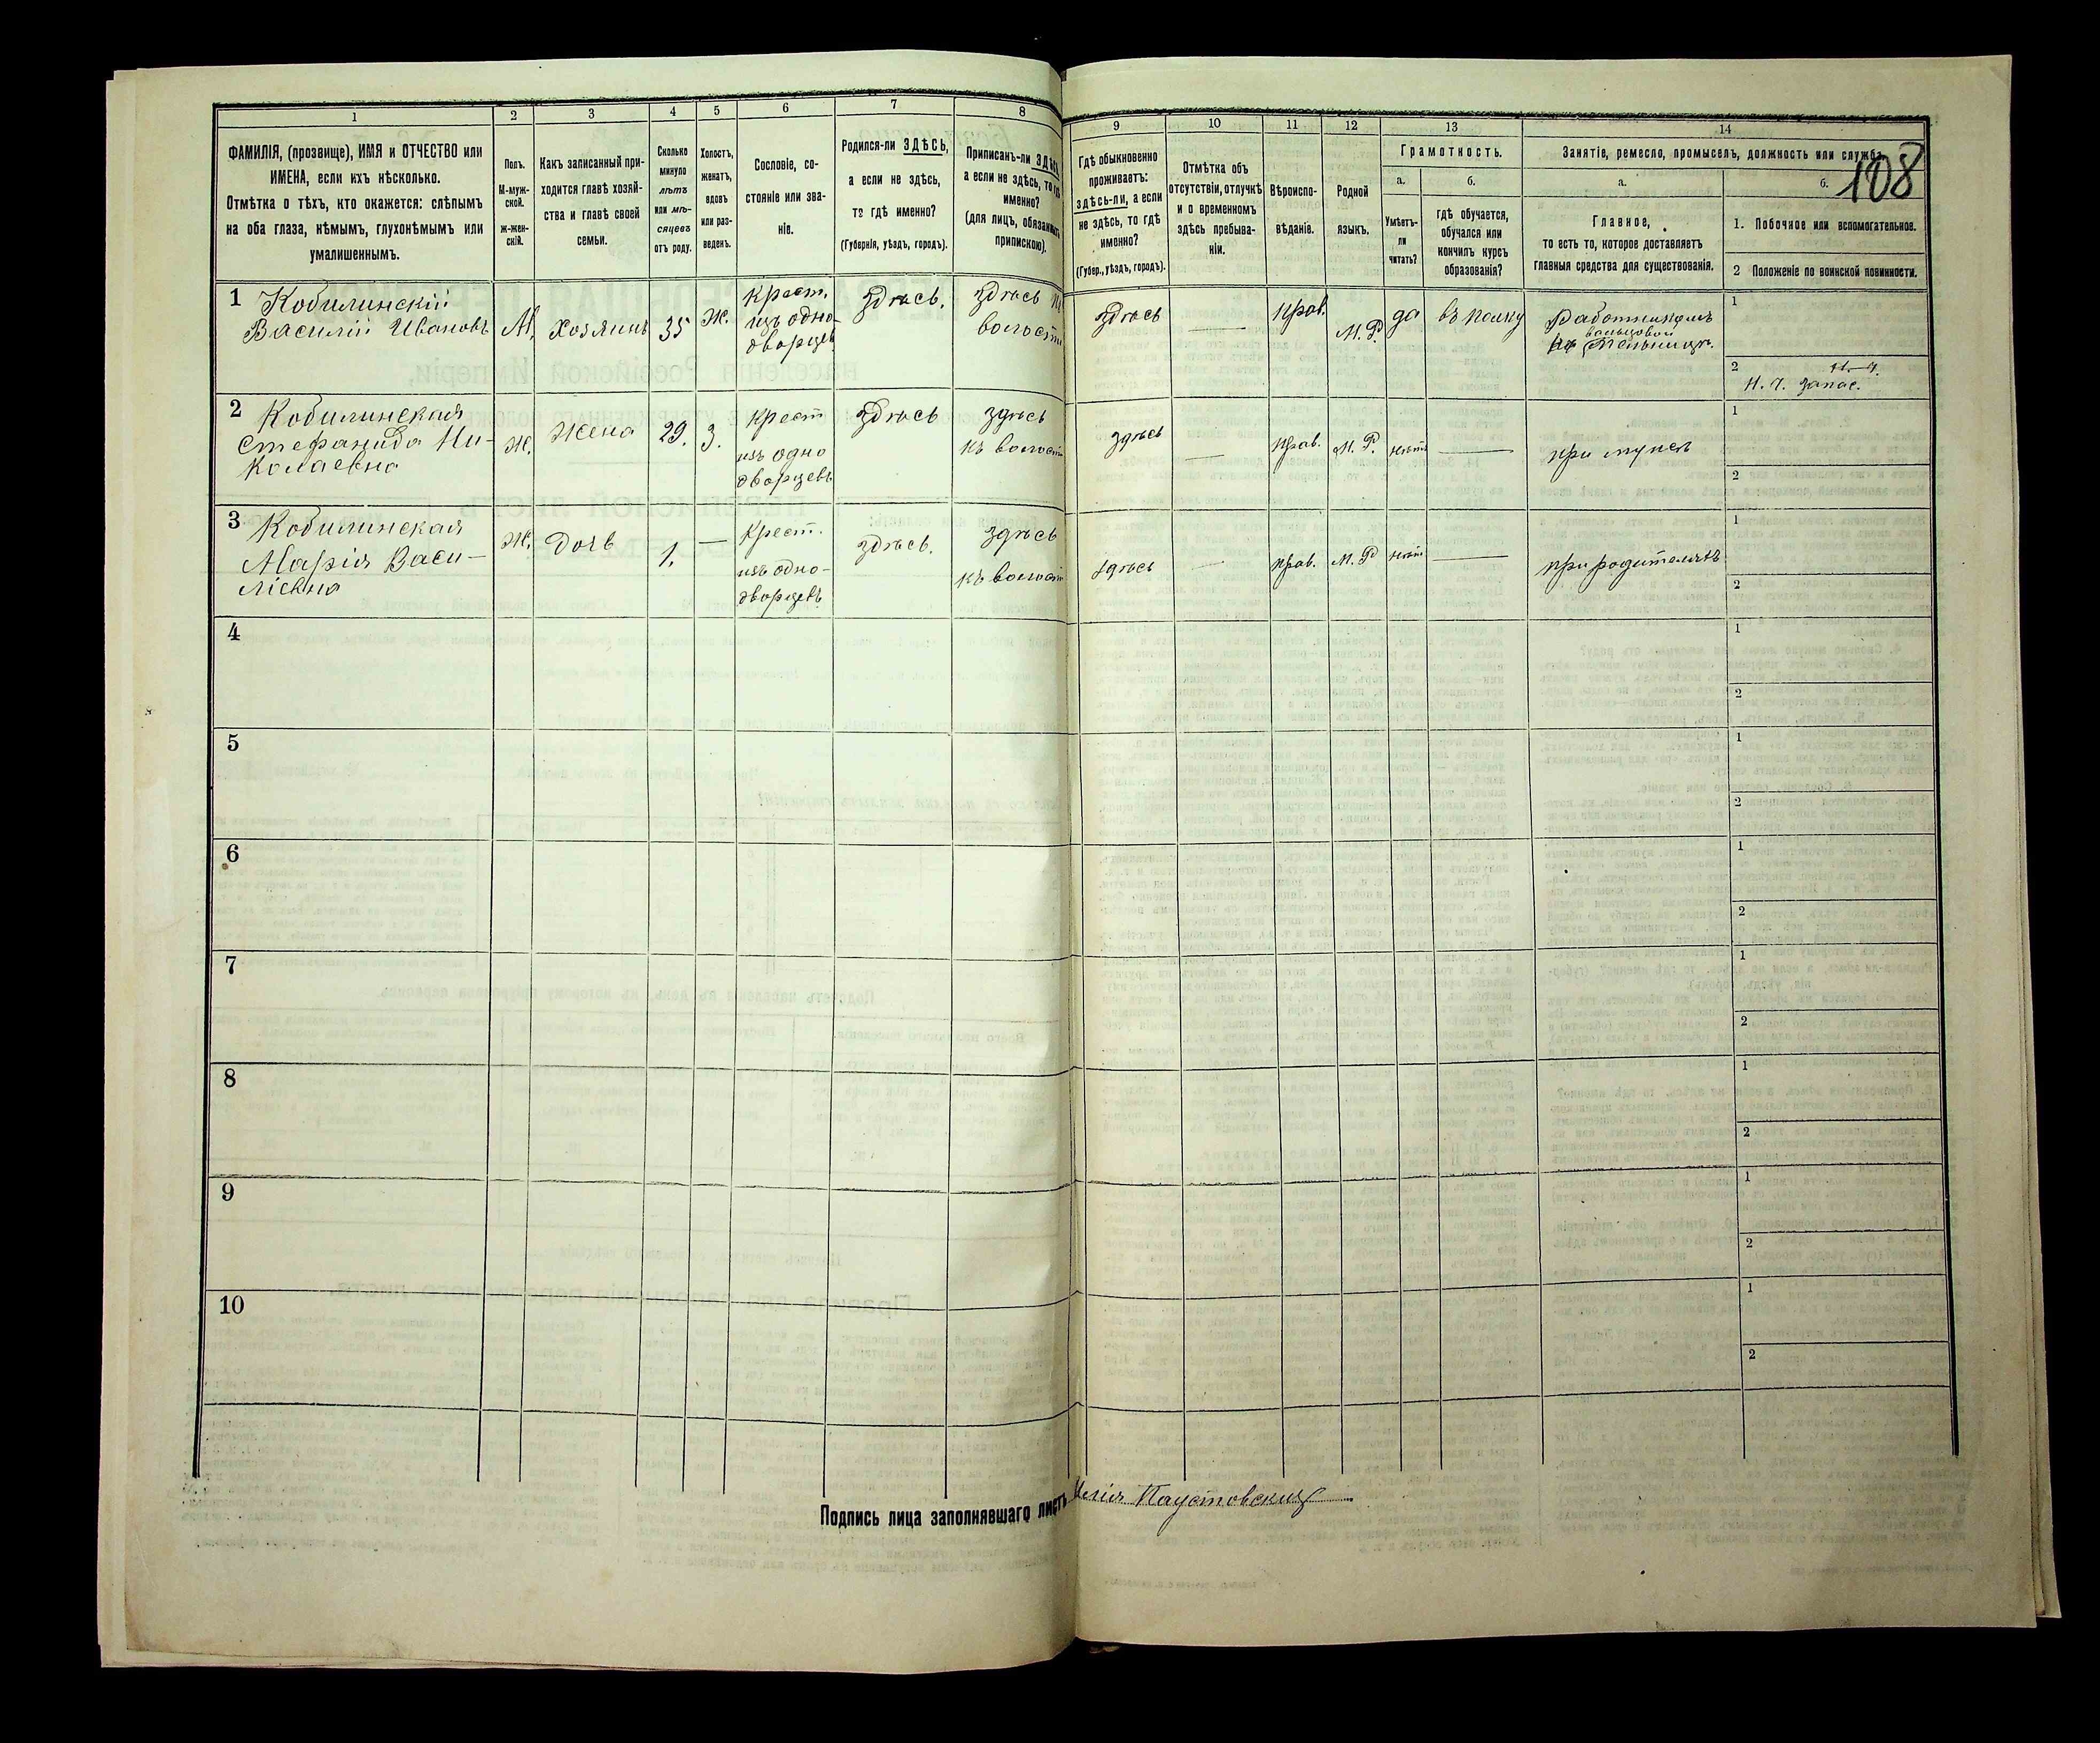 108
1
2
3
4
5
6
7
8
9
10
11
12
13
14
ФАМИЛІЯ, (прозвище), ИМЯ и ОТЧЕСТВО или
ИМЕНА, если ихъ нѣсколько.
Отмѣтка о тѣхъ, кто окажется: слѣпымъ
на оба глаза, нѣмымъ, глухонѣмымъ или
умалишеннымъ.
Полъ.
М-муж-
ской.
ж-жен-
скій.
Какъ записанный при-
ходится главѣ хозяй-
ства и главѣ своей
семьи.
Сколько
минуло
лѣтъ
или мѣ-
сяцевъ
отъ роду.
Холостъ,
женатъ,
вдовъ
или раз-
веденъ.
Сословіе, со-
стояніе или зва-
ніе.
Родился-ли ЗДѢСЬ,
а если не здѣсь,
то гдѣ именно?
(Губернія, уѣздъ, городъ).
Приписанъ-ли ЗДѢСЬ,
а если не здѣсь, то гдѣ
именно?
(для лицъ, обязанныхъ
припискою).
Гдѣ обыкновенно
проживаетъ:
здѣсь-ли, а если
не здѣсь, то гдѣ
именно?
(Губер., уѣздъ, городъ).
Отмѣтка объ
отсутствіи, отлучкѣ
и о временномъ
здѣсь пребыва-
ніи.
Вѣроиспо-
вѣданіе.
Родной
языкъ.
Грамотность.
а.
Умѣетъ-
ли
читать?
б.
гдѣ обучается,
обучался или
кончилъ курсъ
образованія?
Занятіе, ремесло, промыселъ, должность или служба.
а.
Главное,
то есть то, которое доставляетъ
главныя средства для существованія.
б.
1. Побочное или вспомогательное.
2 Положеніе по воинской повинности.
1 Кобилинскій
Василій Ивановъ
М.
Хозяинъ
35
Ж.
Крест.
изъ одно-
дворцевъ
здѣсь.
здѣсь
волости
здѣсь
—
Прав.
М. Р.
да
въ полку
Работникомъ
вальцовой
мельницѣ.
1
2
Н. Ч. запас.
2 Кобилинская
Стефанида Ни-
колаевна
Ж.
Жена
29.
З.
Крест
изъ одно
дворцевъ
здѣсь
здѣсь
къ волости
здѣсь
—
Прав.
М. Р.
нѣтъ
—
при мужѣ
1
2
3 Кобилинская
Марія Васи-
ліевна
Ж.
Дочь
1.
—
Крест.
изъ одно-
дворцевъ
здѣсь.
здѣсь
къ волости
здѣсь
—
прав.
М. Р
нѣтъ
—
при родителяхъ
1
2
4
1
2
5
1
2
6
1
2
7
1
2
8
1
2
9
1
2
10
1
2
Подпись лица заполнявшаго листъ Паустовскій